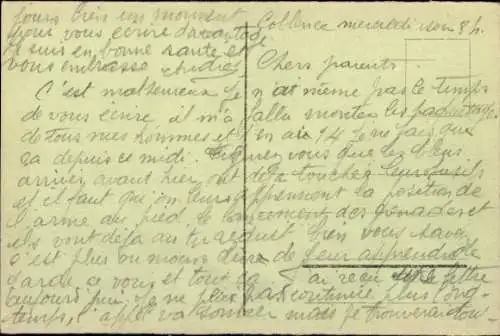 Coblence mercredi soir 8 h.
Chers parents
C'est malheureux je n'ai même pas le temps
de vous écrire, il m'a fallu monter les paquetages
de tous mes hommes et j'en ai 14 je ne fais que
ça depuis ce midi. Figurez vous que les bleus
arrivés avant hier, ont déjà touché leurs fusils
et il faut qu'on leurs apprennent la position de
l'arme au pied, le lancement des grenades et
ils vont déjà au tir réduit. Bien vous savez
c'est plus ou moins de leur apprendre
garde à vous et tout ça J'ai reçu lettre
aujourd'hui. Je ne peux pas continuer plus long-
temps, l'appel va sonner mais je trouverai tou-
jours bien un moment
pour vous écrire davantage.
Je suis en bonne santé et
vous embrasse